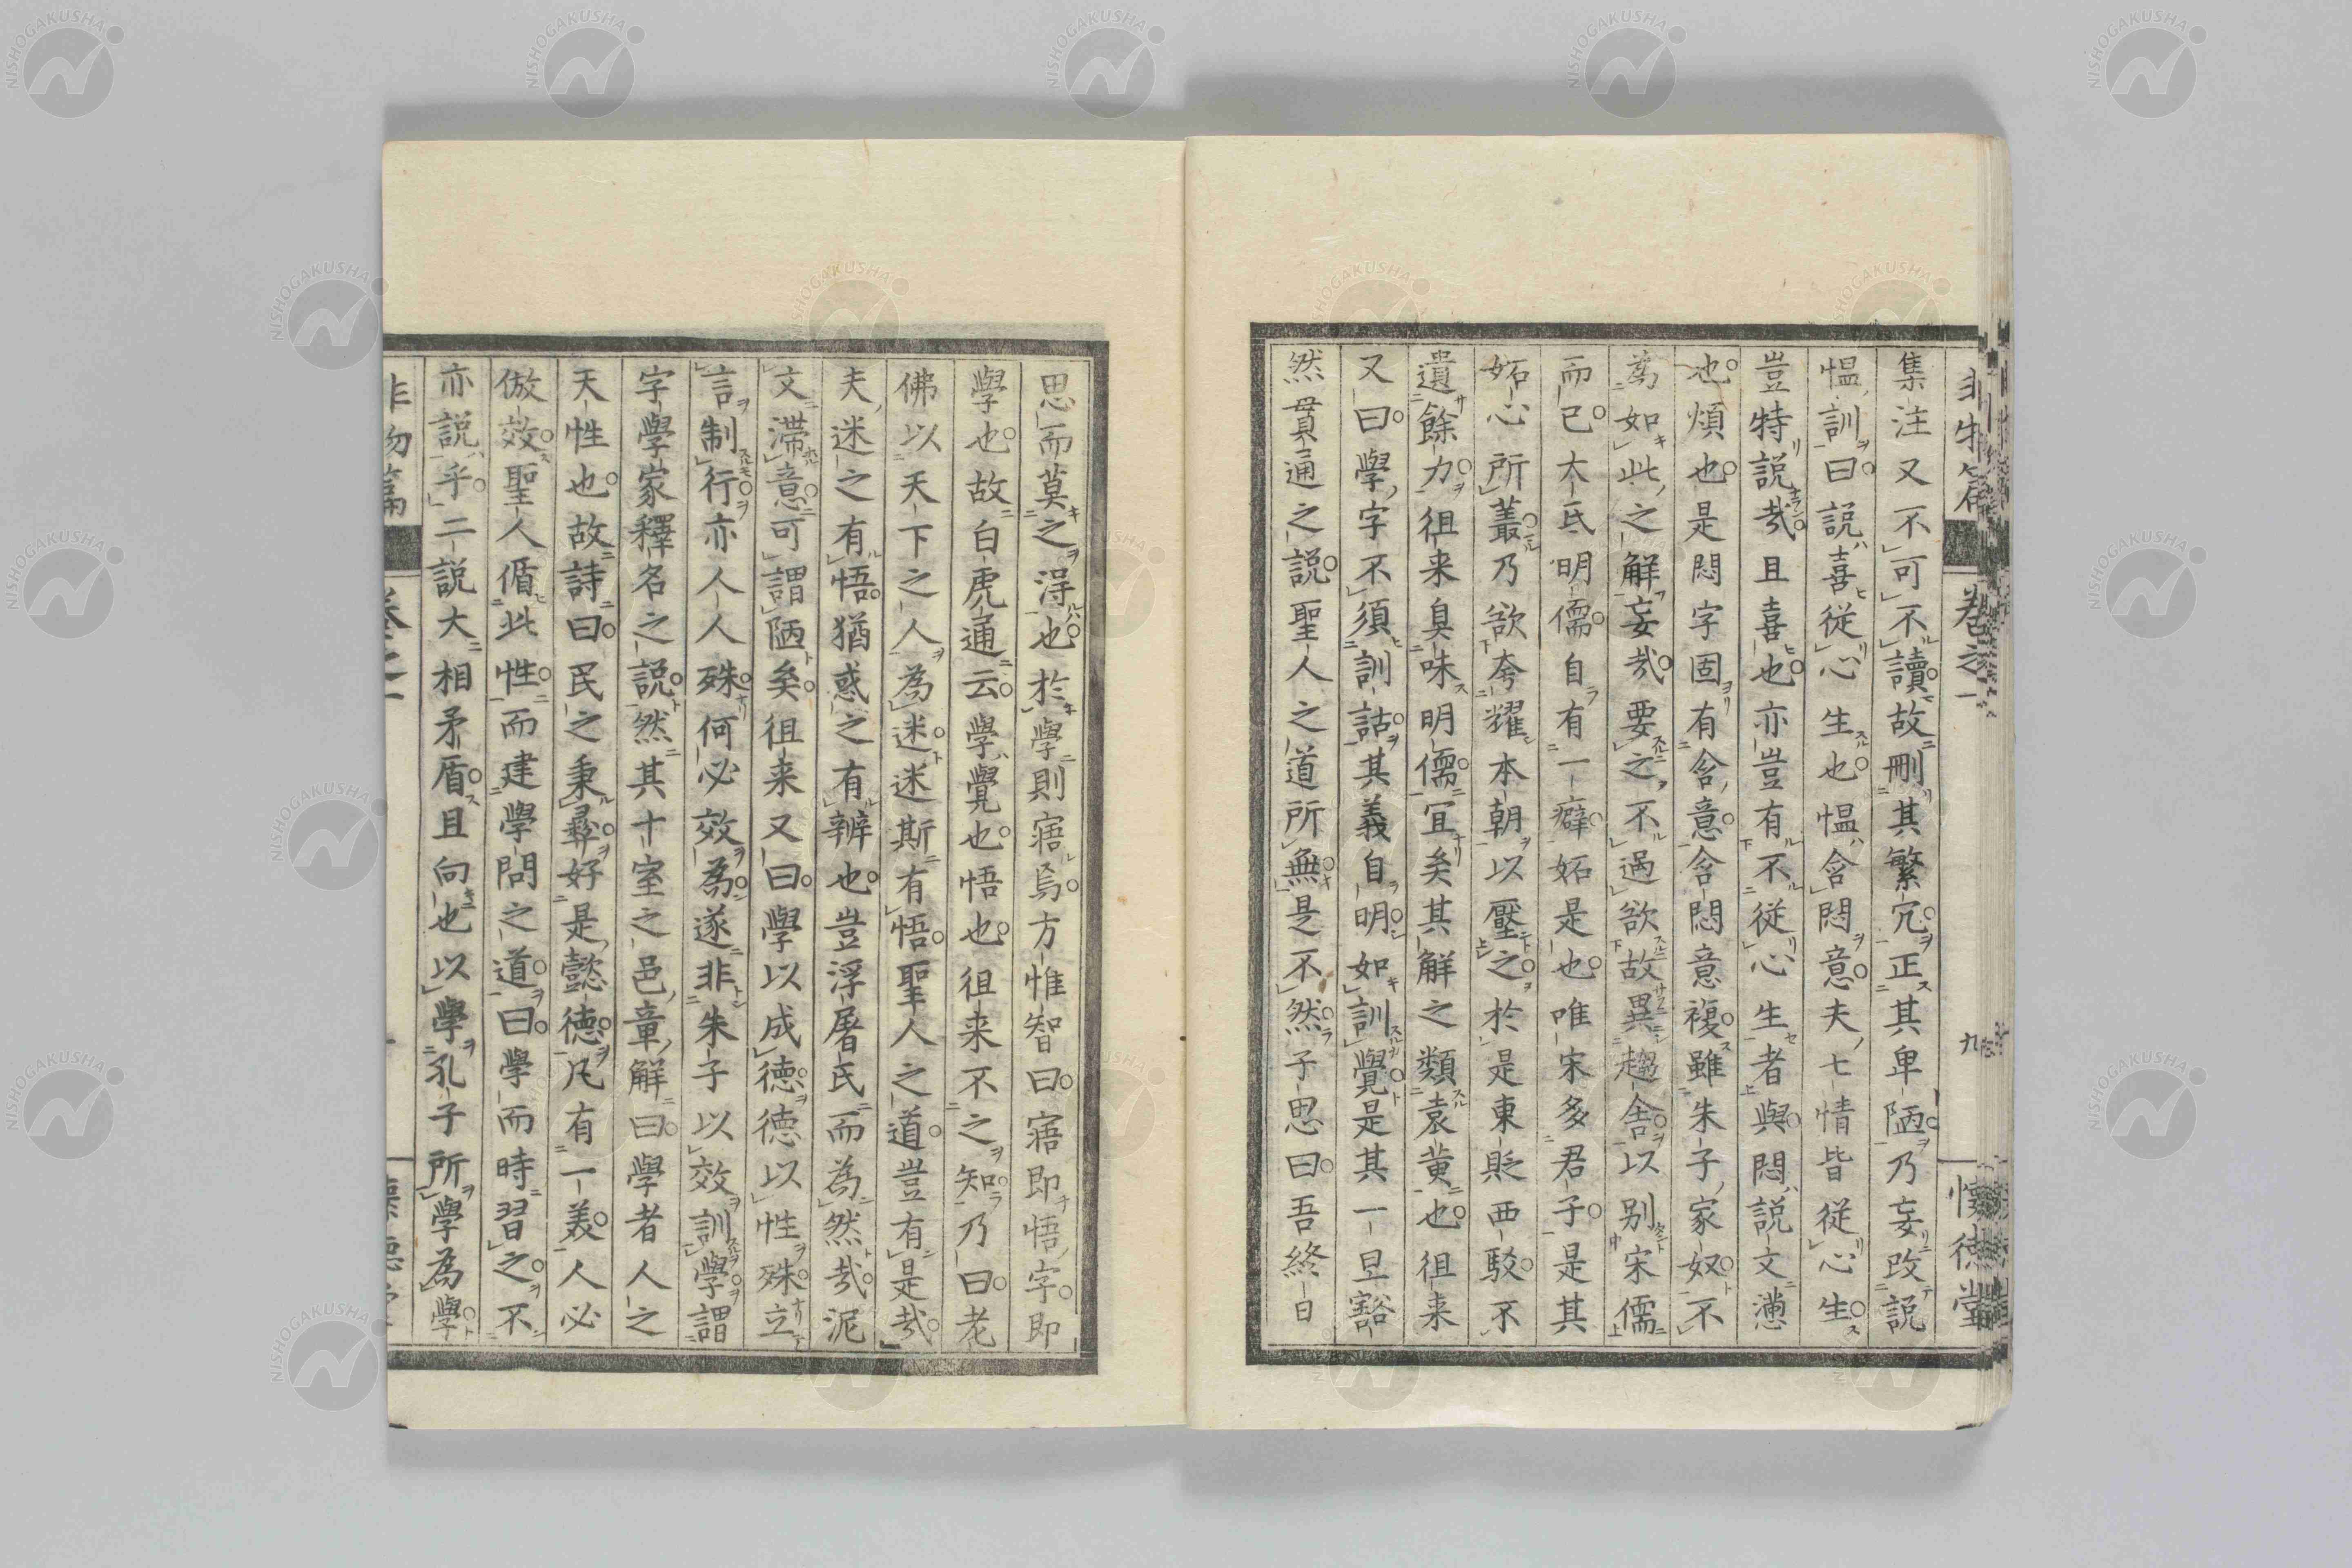 非物篇 卷之一 九 懷德堂
集注又不可不讀故刪其繁冗正其卑陋乃妄改説
慍訓曰説喜從心生也慍含悶意夫七情皆從心生
豈特説哉且喜也亦豈有不從心生者與悶説文懣
也煩也是悶字固有含意含悶意複雖朱子家奴不
為如此之解妄哉要之不過欲故異趨舎以別宋儒
而已大氐明儒自有一癖妬是也唯宋多君子是其
妬心所叢乃欲夸耀本朝以壓之於是東貶西駁不
遺餘力徂来臭味明儒宜矣其解之類袁黄也徂来
又曰學字不須訓詁其義自明如訓覺是其一旦豁
然貫通之説聖人之道所無是不然子思曰吾終日
思而莫之得也於學則寤焉方惟智曰寤即悟字即
學也故白虎通云學覺也悟也徂来不之知乃曰老
佛以天下之人為迷迷斯有悟聖人之道豈有是哉
夫迷之有悟猶惑之有辨也豈浮屠氏而為然哉泥
文滯意可謂陋矣徂来又曰學以成德德以性殊立
言制行亦人人殊何必效為遂非朱子以效訓學謂
字學家釋名之説然其十室之邑章解曰學者人之
天性也故詩曰民之秉彝好是懿德凡有一美人必
倣效聖人循此性而建學問之道曰學而時習之不
亦説乎二説大相矛盾且向也以學孔子所學為學
非物篇